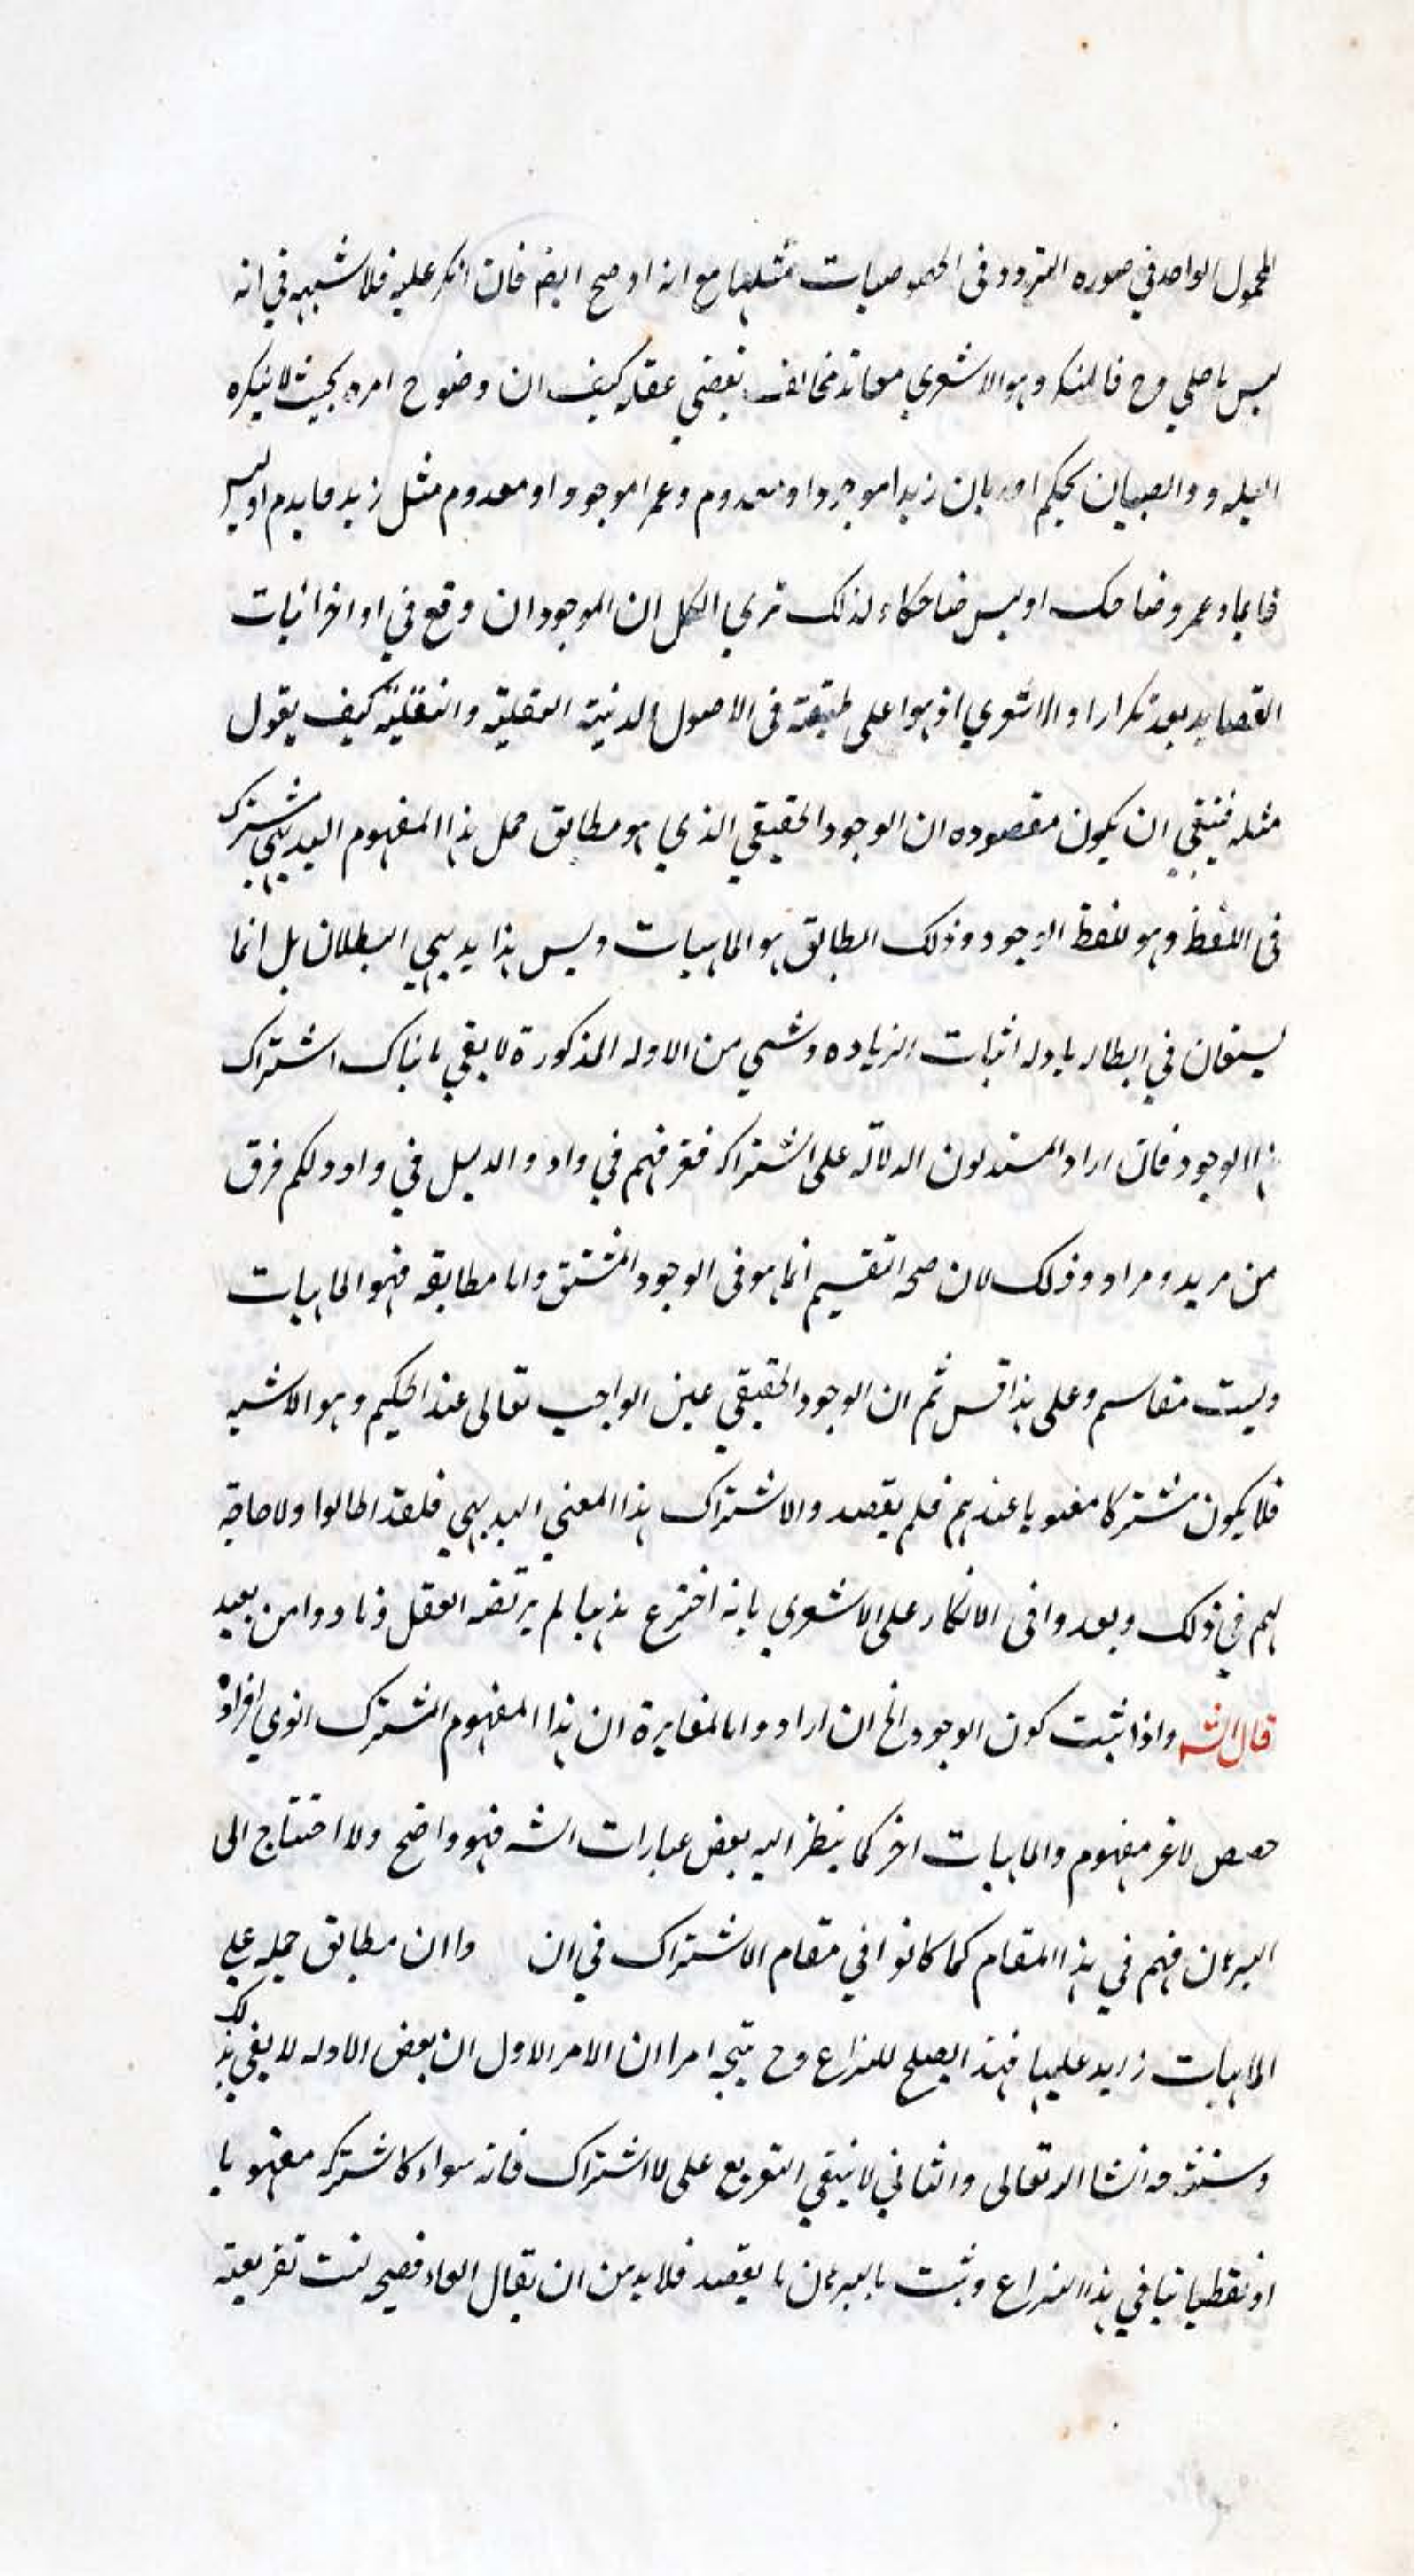 المحمول الواحد في صوره التردد في الخصوصيات مثلها مع انه اوضح ايضا فان انكر عليه فلا شبهه في انه
ليس باصلي وح فالمنكر وهو الاشعري معاند مخالف بعضي عقله كيف ان وضوح امره بحيث لا ينكره
البله والصبيان بحكم احد بان زيدا موجود او معدوم وعمرا موجود او معدوم مثل زيد قايم او ليس
قايما وعمرو ضاحك او ليس ضاحكا ولذلك ترى الكل ان الموجود ان وقع في اواخر ابيات
القصايد يعد تكرارا والاشعري اذ هو اعلى طبقة في الاصول الدنية العقلية والنقلية كيف يقول
مثله فينبغي ان يكون مقصوده ان الوجود الحقيقي الذي هو مطابق حمل هذا المفهوم البديهي مشترك
في اللفظ وهو لفظ الوجود وذلك المطابق هو الماهيات وليس هذا بديهي البطلان بل انما
يستعان في ابطاله بادله اثبات الزياده وشي من الادله المذكورة لا يفي باثبات اشتراك
هذا الوجود فان اراد المستدلون الدلالة على اشتراكه فغرضهم في واد والدليل في واد ولكم فرق
من مريد ومراد وذلك لان صحه التقسيم انما هو في الوجود المشتق واما مطابقه فهو الماهيات
وليست مقاسم وعلى هذا قس ثم ان الوجود الحقيقي عين الواجب تعالى عند الحكيم وهو الاشبه
فلا يكون مشتركا معنويا عندهم فلم يقصد والاشتراك هذا المعني البديهي فلقد اطالوا ولا حاجة
لهم في ذلك وبعدوا في الانكار على الاشعري بانه اخترع مذهبا لم يرتضه العقل ونادوا من بعيد
قال الشه واذا ثبت كون الوجود الخ ان ارادوا بالمغايرة ان هذا المفهوم المشترك الذي افراده
حصص لا غير مفهوم والماهيات اخر كما ينظر اليه بعض عبارات الشه فهو واضح ولا احتياج الى
البرهان فهم في هذا المقام كما كانوا في مقام الاشتراك في ان وا ان مطابق حمله على
الماهيات زايد عليها فهذا يصلح للنزاع وح يتجه امران الامر الاول ان بعض الادله لا يفي بذلك
وستعرفه انشا الله تعالى والثاني لا ينبغي التفريع على لا اشتراك فانه سواء كا شتركه معنويا
او لفظيا يتاتي هذا النزاع وثبت بالبرهان ما يقصد فلا بد من ان يقال الفاء فصيحه ليست تفريعية